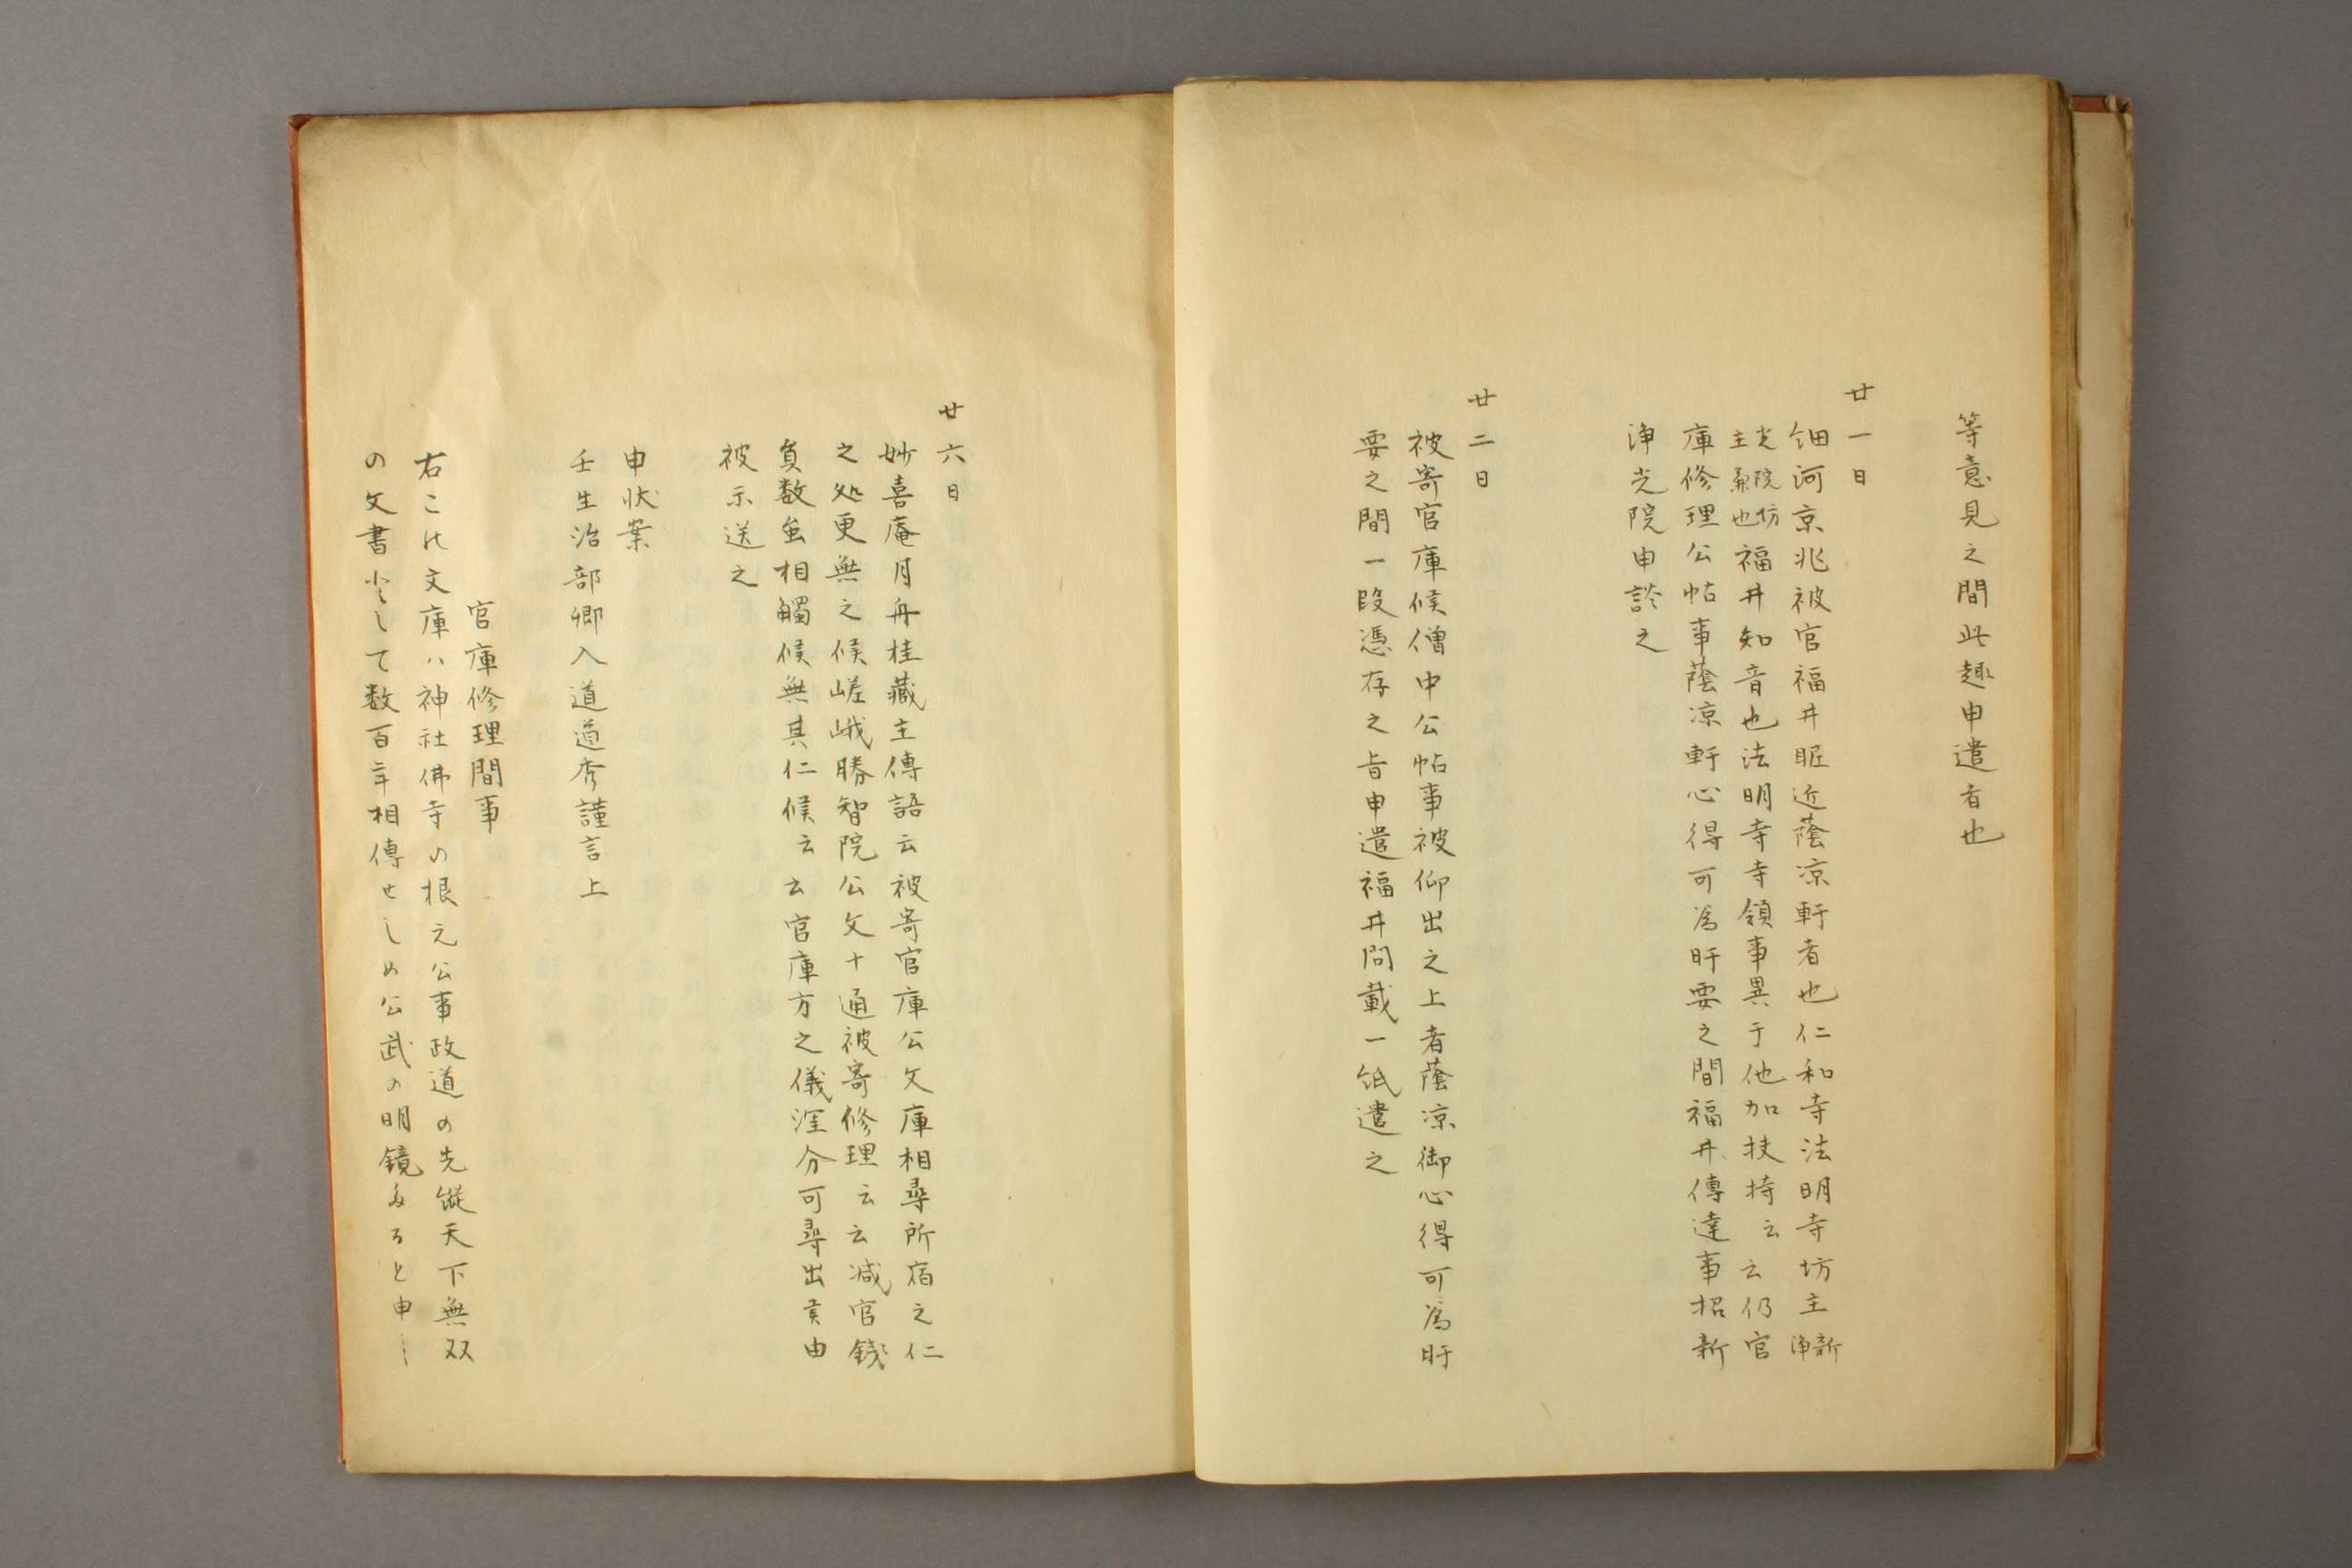 等意見之間此趣申遣者也
廿一日
細河京兆被官福井昵近蔭凉軒者也仁和寺法明寺坊主新浄
光院坊主兼也福井知音也法明寺寺領事異于他加扶持云云仍官
庫修理公帖事蔭凉軒心得可為肝要之間福井傳達事招新
浄光院申談之
廿二日
被寄官庫候僧中公帖事被仰出之上者蔭凉御心得可為肝
要之間一段憑存之旨申遣福井問載一紙遣之
廿六日
妙喜庵月舟桂蔵主傳語云被寄官庫公文庫相尋所宿之仁
之処更無之候嵯峨勝智院公文十通被寄修理云云減官錢
負数雖相觸候無其仁候云云官庫方之儀涯分可尋出責由
被示送之
申状案
壬生治部卿入道道秀謹言上
官庫修理間事
右この文庫ハ神社佛寺の根元公事政道の先蹤天下無双
の文書として数百年相傳せしめ公武の明鏡たると申